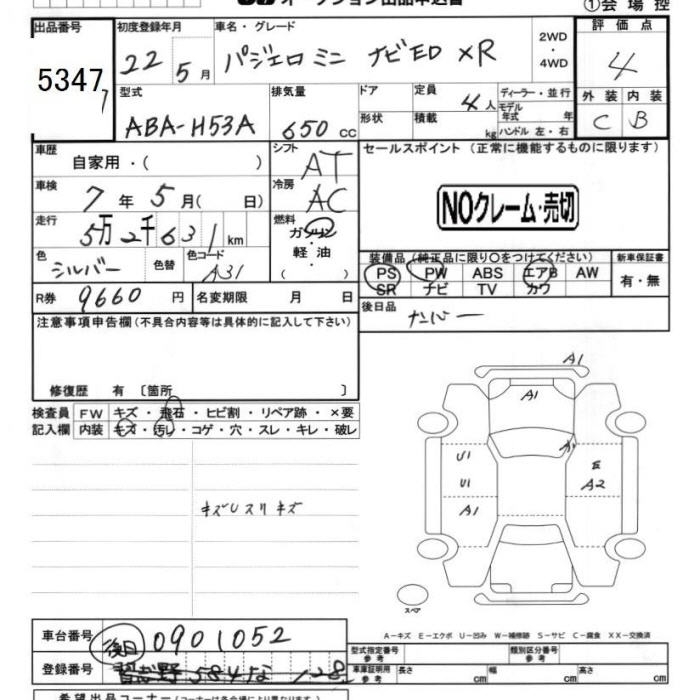 ①会場控
出品番号 初度登録年月 車名・グレード 2WD・4WD 評価点
5347 22 5月 パジェロ ミニ ナビED XR 4
型式 排気量 ドア 定員 ディーラー・並行 外装 内装
ABA-H53A 650 cc 4人 モデル年式 年 C B
形状 積載 kg ハンドル 左・右
車歴 シフト セールスポイント (正常に機能するものに限ります)
自家用・( ) AT
車検 冷房
7年5月( 日) AC NOクレーム・売切
走行 燃料
5万2千631km ガソリン
軽油
( )
色 色替 色コード 装備品 (純正品に限り○をつけてください) 新車保証書
シルバー A31 PS PW ABS エアB AW 有・無
SR ナビ TV カワ
R券 9660円 名変期限 月 日 後日品 ナンバー
注意事項申告欄 (不具合内容等は具体的に記入して下さい)
修復歴 有 〔箇所 〕
検査員 FW キズ・飛石・ヒビ割・リペア跡・×要
記入欄 内装 キズ・汚レ・コゲ・穴・スレ・キレ・破レ
A1
A1
A1
U1 E
U1 A2
A1
キズUスリキズ
スペア
A-キズ E-エクボ U-凹み W-補修跡 S-サビ C-腐食 XX-交換済
車台番号 後日 0901052
型式指定番号 参考 類別区分番号 参考
登録番号
車庫証明用 参考 長さ cm 幅 cm 高さ cm
希望出品コーナー